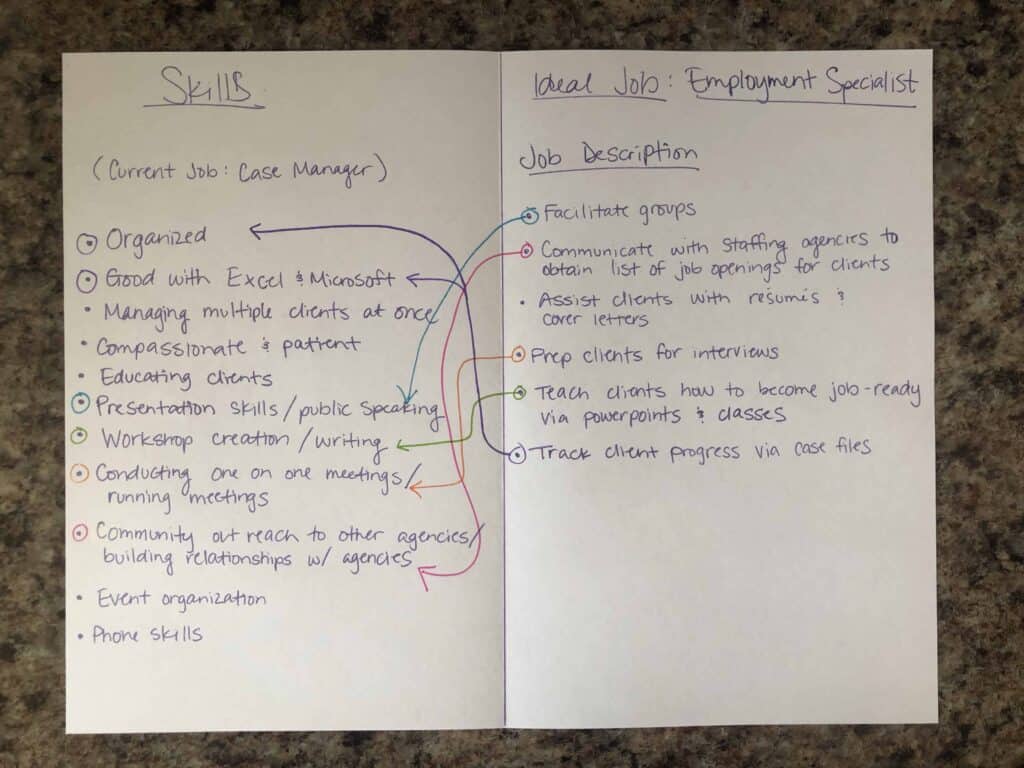 Skills
(Current Job: Case Manager)
Organized
Good with Excel & Microsoft
• Managing multiple clients at once
• Compassionate & patient
• Educating clients
Presentation skills/public speaking
Workshop creation/writing
Conducting one on one meetings/
running meetings
Community out reach to other agencies/
building relationships w/ agencies
• Event organization
• Phone skills
Ideal Job: Employment Specialist
Job Description
Facilitate groups
Communicate with staffing agencies to
obtain list of job openings for clients
• Assist clients with resumes &
cover letters
Prep clients for interviews
Teach clients how to become job-ready
via powerpoints & classes
Track client progress via case files